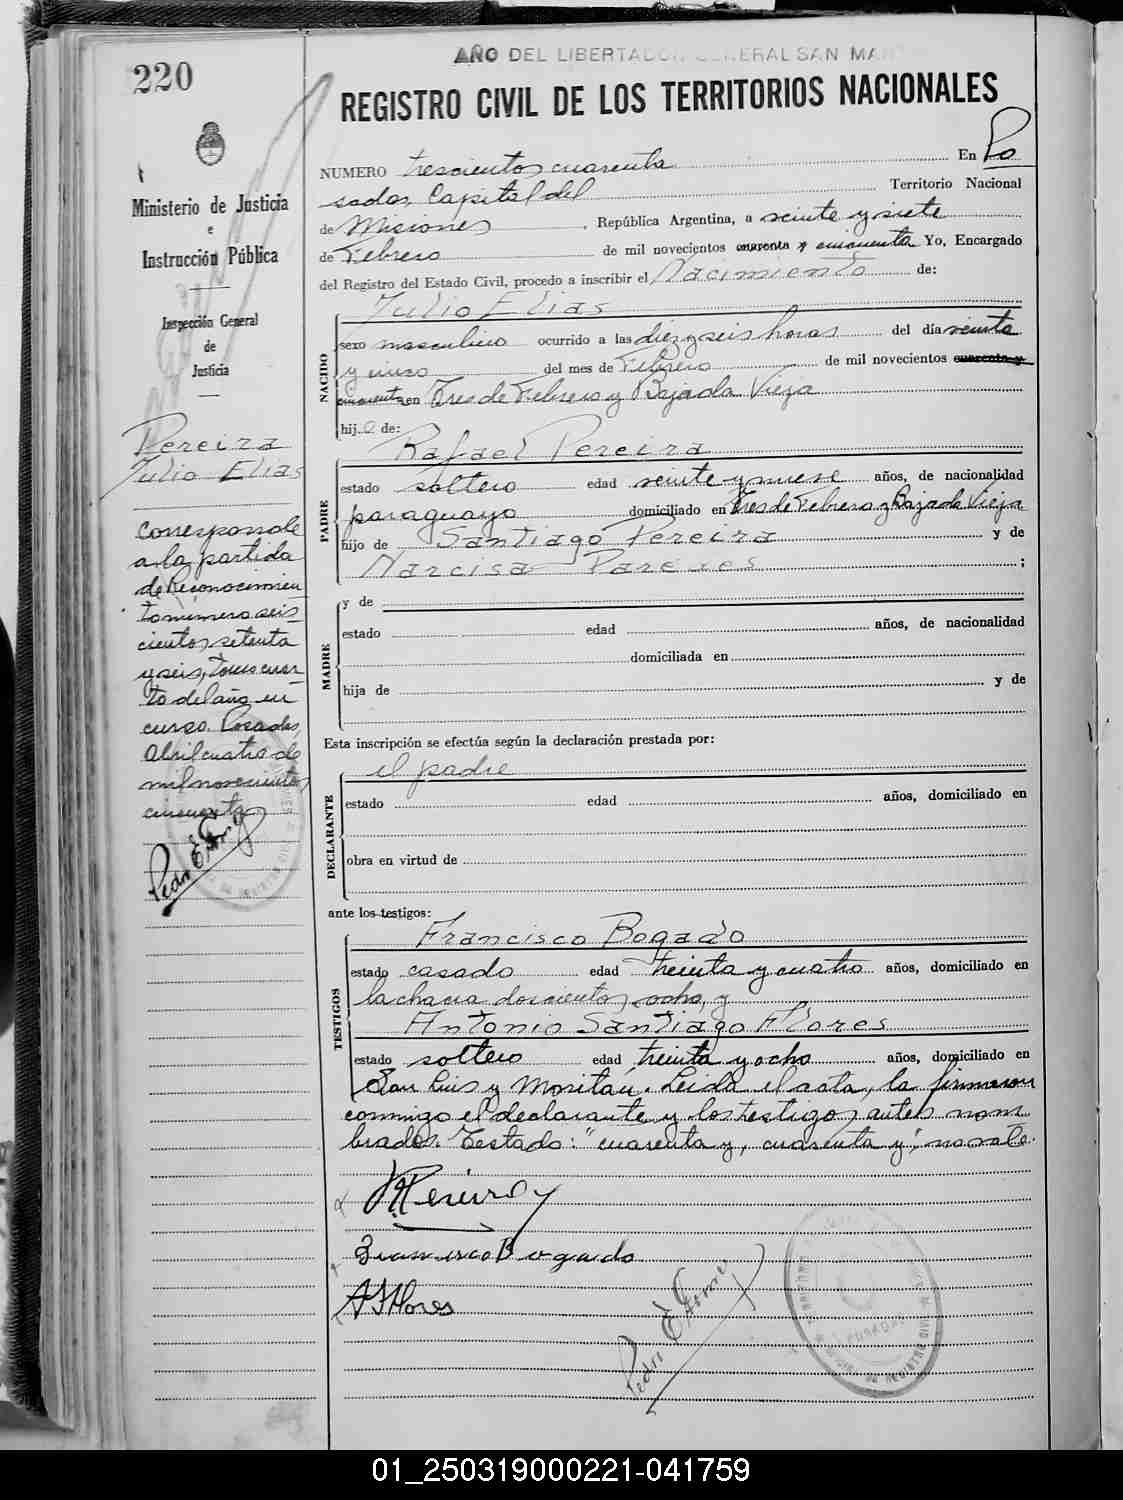 220
AÑO DEL LIBERTADOR GENERAL SAN MAR
REGISTRO CIVIL DE LOS TERRITORIOS NACIONALES
Ministerio de Justicia
e
Instrucción Pública
Inspección General
de
Justicia
Pereira
Julio Elias
Corresponde
a la partida
de Reconocimien
to numero seis
cientos setenta
y seis, tomo cuar
to del año en
curso. Posadas,
Abril cuatro de
mil novecientos
cincuenta
NUMERO trescientos cuarenta En Po
sadas, Capital del Territorio Nacional
de Misiones, República Argentina, a veinte y siete
de Febrero de mil novecientos cuarenta y cincuenta Yo, Encargado
del Registro del Estado Civil, procedo a inscribir el Nacimiento de:
NACIDO
Julio Elias
sexo masculino ocurrido a las diez y seis horas del día veinte
y cinco del mes de Febrero de mil novecientos cuarenta y
cincuenta en Tres de Febrero y Bajada Vieja
hijo de:
PADRE
Rafael Pereira
estado soltero edad veinte y nueve años, de nacionalidad
paraguayo domiciliado en Tres de Febrero y Bajada Vieja
hijo de Santiago Pereira y de
Narcisa Paredes;
MADRE
y de
estado edad años, de nacionalidad
domiciliada en
hija de y de
Esta inscripción se efectúa según la declaración prestada por:
DECLARANTE
el padre
estado edad años, domiciliado en
obra en virtud de
ante los testigos:
TESTIGOS
Francisco Bogado
estado casado edad treinta y cuatro años, domiciliado en
la chacra doscientos ocho, y
Antonio Santiago Flores
estado soltero edad treinta y ocho años, domiciliado en
San Luis y Moritán. Leida el acta, la firmaron
conmigo el declarante y los testigos antes nom
brados. Testado: "cuarenta y, cuarenta y", no vale.
Francisco Bogado
A S Flores
01_250319000221-041759